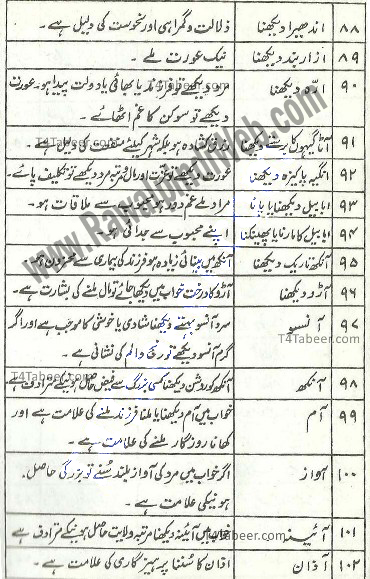 ۸۸ اندھیرا دیکھنا ذلالت و گمراہی اور نحوست کی دلیل ہے۔
۸۹ ازار بند دیکھنا نیک عورت ملے۔
۹۰ ارّہ دیکھنا مرد دیکھے تو فرزند یا بھائی یا دولت پیدا ہو۔ عورت
دیکھے تو سوکن کا غم اٹھائے۔
۹۱ آٹا گیہوں کا دیکھنا رزق کشادہ ہو بلکہ شہر کیلئے منفعت کی دلیل ہے۔
۹۲ انگیہ پاکیزہ دیکھنا عورت دیکھے تو عزت اور مرد دیکھے تو تکلیف پائے۔
۹۳ ابابیل دیکھنا یا پانا مراد ملے غم دور ہو محبوب سے ملاقات ہو۔
۹۴ ابابیل کا مارنا یا پھینکنا اپنے محبوب سے جدائی ہو۔
۹۵ آنکھ تاریک دیکھنا آنکھ میں بینائی زیادہ ہو فرزند کی بیماری سے محزون ہو۔
۹۶ آڑو دیکھنا آڑو کا درخت خواب میں دیکھا جائے تو مال ملنے کی بشارت ہے۔
۹۷ آنسو سرد آنسو بہتے دیکھنا شادی یا خوشی کا موجب ہے اور اگر
گرم آنسو دیکھے تو رنج و الم کی نشانی ہے۔
۹۸ آنکھ آنکھ کو روشن دیکھنا کسی بزرگ سے فیض حاصل ہونیکے مترادف ہے
۹۹ آم خواب میں آم دیکھنا یا ملنا فرزند ملنے کی علامت ہے اور
کھانا روزگار ملنے کی علامت ہے۔
۱۰۰ آواز اگر خواب میں مرد کی آواز بلند سُنے تو بزرگی حاصل
ہونیکی علامت ہے۔
۱۰۱ آئینہ خواب میں آئینہ دیکھنا مرتبہ ولایت حاصل ہونیکے مترادف ہے
۱۰۲ آذان اذان کا سُننا پرہیزگاری کی علامت ہے۔
www.RawalpindiWeb.com
T4Tabeer.com
T4Tabeer.com
T4Tabeer.com
T4Tabeer.com
T4Tabeer.com